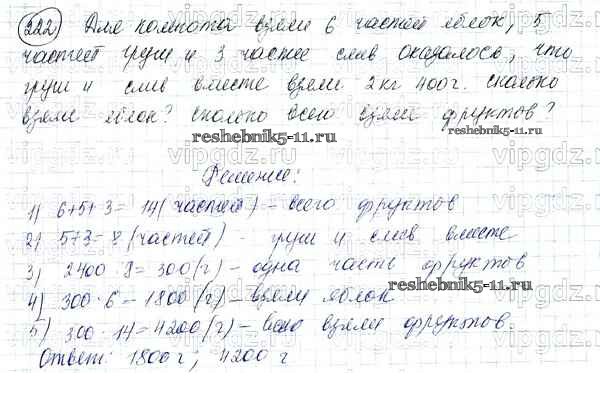 222) Для компота взяли 6 частей яблок, 5
частей груш и 3 части слив оказалось, что
груш и слив вместе взяли 2 кг 400 г. сколько
взяли яблок? сколько всего взяли фруктов?
reshebnik5-11.ru
Решение:
1) 6+5+3= 14 (частей) - всего фруктов
2) 5+3=8 (частей) - груш и слив вместе
3) 2400 : 8=300 (г) - одна часть фруктов
reshebnik5-11.ru
4) 300 · 6 = 1800 (г) - взяли яблок
5) 300 · 14=4200 (г) - всего взяли фруктов.
Ответ: 1800 г; 4200 г
vipgdz.ru